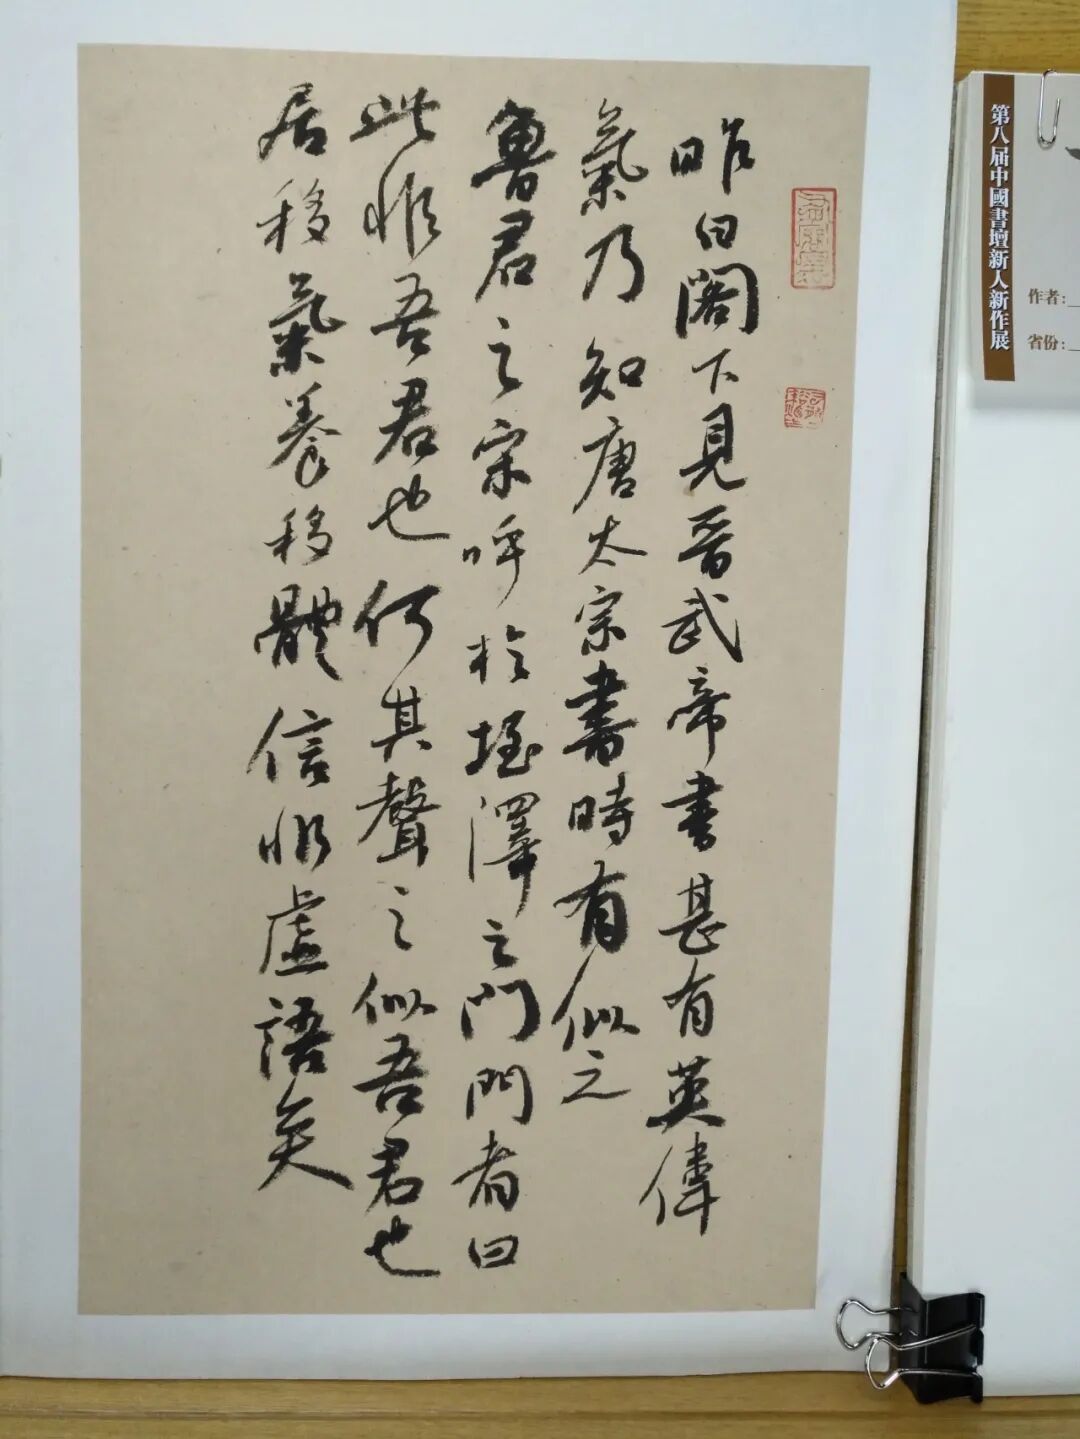 昨日阁下見晋武帝書甚有英偉
氣乃知唐太宗書時有似之
魯君之宋呼於垤澤之門門者曰
此非吾君也何其聲之似吾君也
居移氣養移體信非虛語矣
第八届中國書壇新人新作展
作者：
省份：